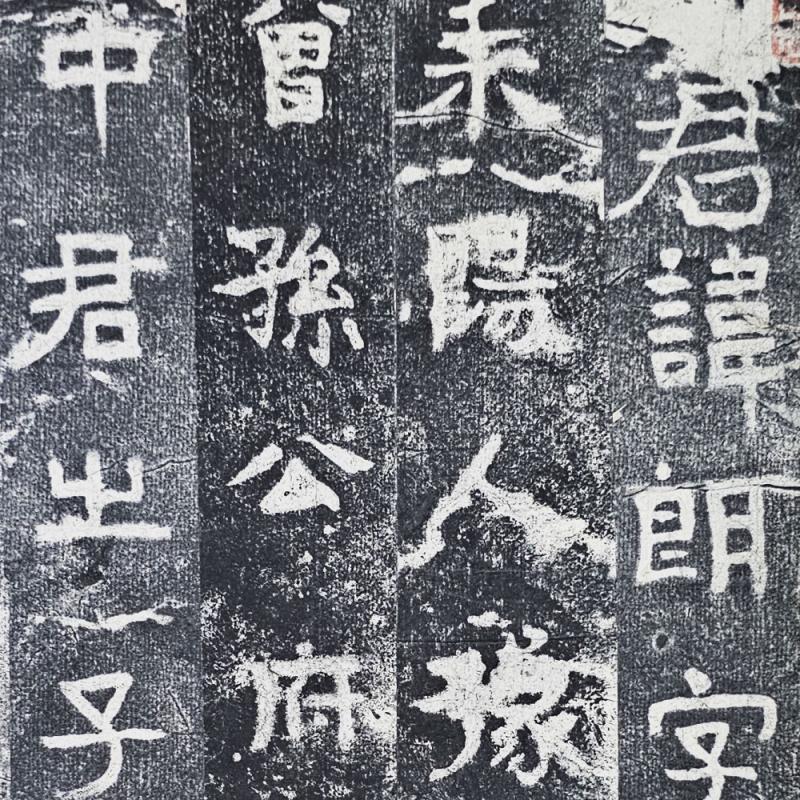 君諱朗字
耒陽人豫
曾孫公府
中君之子